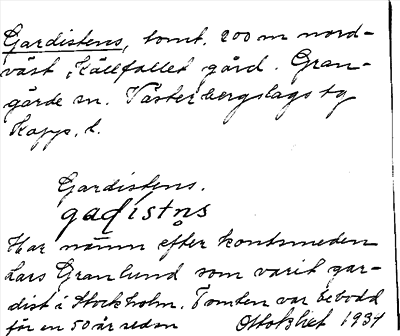 Gardistens, tomt. 200 m nord-
väst Källfallet gård. Gran-
gärde sn. Västerbergslags tg
Kopp. l.
Gardistens.
gadistn̥s
Har namn efter kontsmeden
Lars Granlund som varit gar-
dist i Stockholm. Tomten var bebodd
för en 50 år sedan 1934